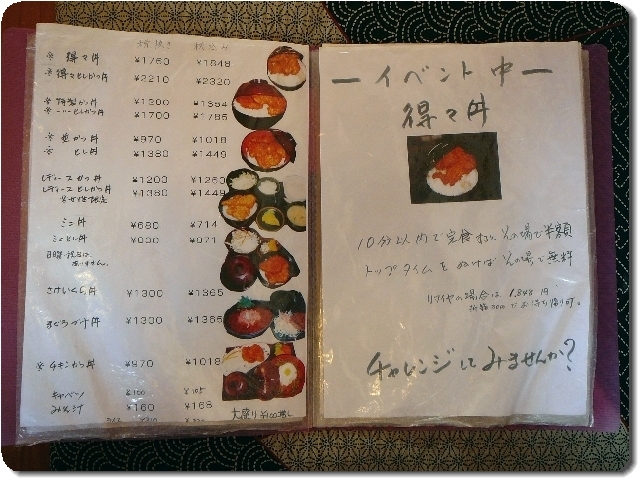 税抜き 税込み
※ 得々丼 ¥1760 ¥1848
※ 得々としかつ丼 ¥2210 ¥2320
※ 特製かつ丼 ¥1290 ¥1354
¥1700 ¥1785
※ 並かつ丼 ¥970 ¥1018
※ とし丼 ¥1380 ¥1449
レディースかつ丼 ¥1200 ¥1260
レディースとしかつ丼 ¥1380 ¥1449
※女性限定
ミニ丼 ¥680 ¥714
ミニとし丼 ¥971
日曜・祝日は
ありません。
さけいくら丼 ¥1300 ¥1365
まぐろづけ丼 ¥1300 ¥1365
※ チキンかつ丼 ¥970 ¥1018
キャベツ ¥100 ¥105
みそ汁 ¥160 ¥168
大盛り ¥100増し
ー イベント中 ー
得々丼
10分以内で完食すると、その場で半額
トップタイムをぬけばその場で無料
リタイヤの場合は 1,848円
お持ち帰り可。
チャレンジしてみませんか？